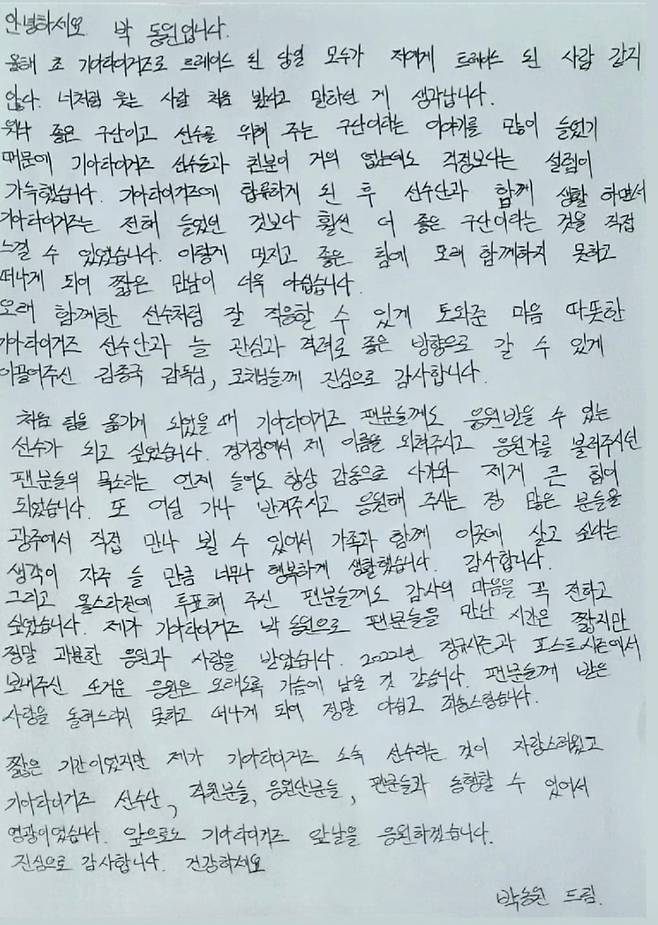 안녕하세요. 박 동원입니다.
올해 초 기아타이거즈로 트레이드 된 당일 모두가 저에게 트레이드 된 사람 같지
않다. 너처럼 웃는 사람 처음 봤다고 말하던 게 생각납니다.
워낙 좋은 구단이고 선수를 위해 주는 구단이라는 이야기를 많이 들었기
때문에 기아타이거즈 선수들과 친분이 거의 없는데도 걱정보다는 설렘이
가득했습니다. 기아타이거즈에 합류하게 된 후 선수단과 함께 생활 하면서
기아타이거즈는 전해 들었던 것보다 훨씬 더 좋은 구단이라는 것을 직접
느낄 수 있었습니다. 이렇게 멋지고 좋은 팀에 오래 함께하지 못하고
떠나게 되어 짧은 만남이 더욱 아쉽습니다.
오래 함께한 선수처럼 잘 적응할 수 있게 도와준 마음 따뜻한
기아타이거즈 선수단과 늘 관심과 격려로 좋은 방향으로 갈 수 있게
이끌어주신 김종국 감독님, 코치님들께 진심으로 감사합니다.
처음 팀을 옮기게 되었을 때 기아타이거즈 팬분들께도 응원받을 수 있는
선수가 되고 싶었습니다. 경기장에서 제 이름을 외쳐주시고 응원가를 불러주시던
팬분들의 목소리는 언제 들어도 항상 감동으로 다가와 제게 큰 힘이
되었습니다. 또 어딜 가나 반겨주시고 응원해 주시는 정 많은 분들을
광주에서 직접 만나 뵐 수 있어서 가족과 함께 이곳에 살고 싶다는
생각이 자주 들 만큼 너무나 행복하게 생활했습니다. 감사합니다.
그리고 올스타전에 투표해 주신 팬분들께도 감사의 마음을 꼭 전하고
싶었습니다. 제가 기아타이거즈 박동원으로 팬분들을 만난 시간은 짧지만
정말 과분한 응원과 사랑을 받았습니다. 2022년 정규시즌과 포스트시즌에서
보내주신 뜨거운 응원은 오래도록 가슴에 남을 것 같습니다. 팬분들께 받은
사랑을 돌려드리지 못하고 떠나게 되어 정말 아쉽고 죄송스럽습니다.
짧은 기간이었지만 제가 기아타이거즈 소속 선수라는 것이 자랑스러웠고
기아타이거즈 선수단, 직원분들, 응원단분들, 팬분들과 동행할 수 있어서
영광이었습니다. 앞으로도 기아타이거즈 앞날을 응원하겠습니다.
진심으로 감사합니다. 건강하세요
박동원 드림.